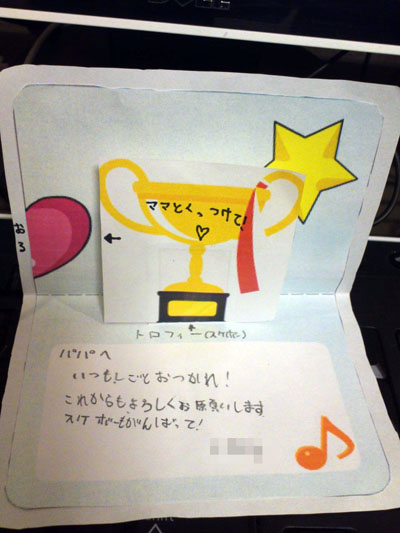 ママとくっつけて!
おる
トロフィー(スケボー)
パパへ
いつもしごとおつかれ!
これからも、よろしくお願いします
スケボーもがんばって!